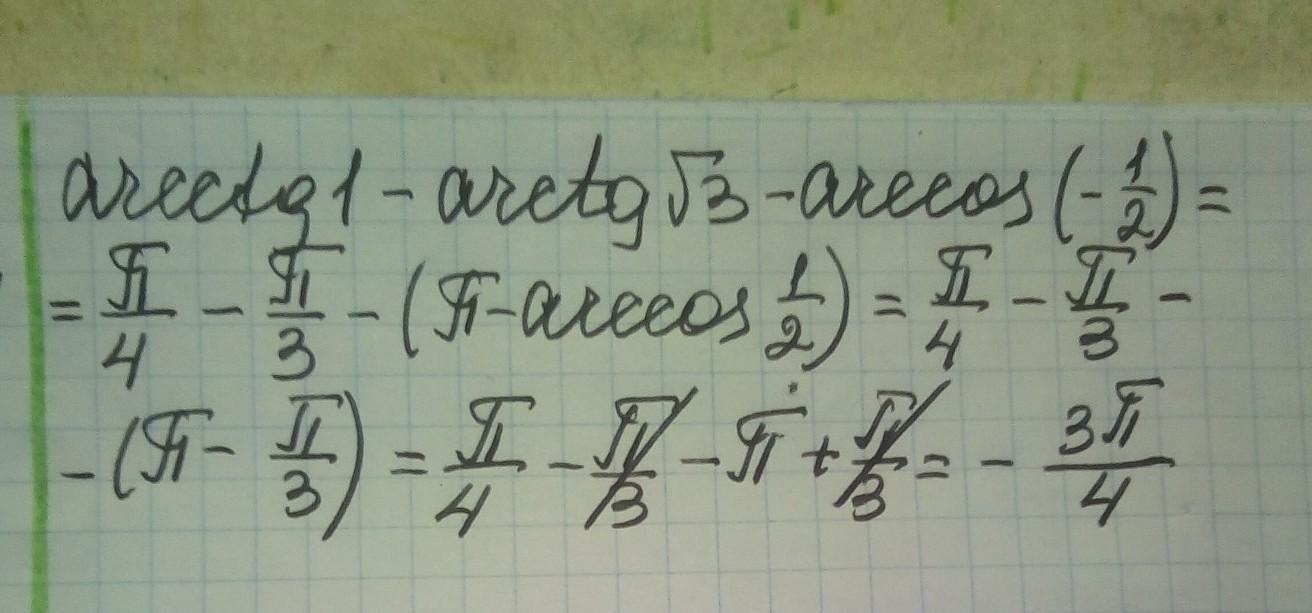 arcctg 1 - arctg √3 - arccos (-1/2) =
= π/4 - π/3 - (π - arccos 1/2) = π/4 - π/3 -
- (π - π/3) = π/4 - π/3 - π + π/3 = - 3π/4